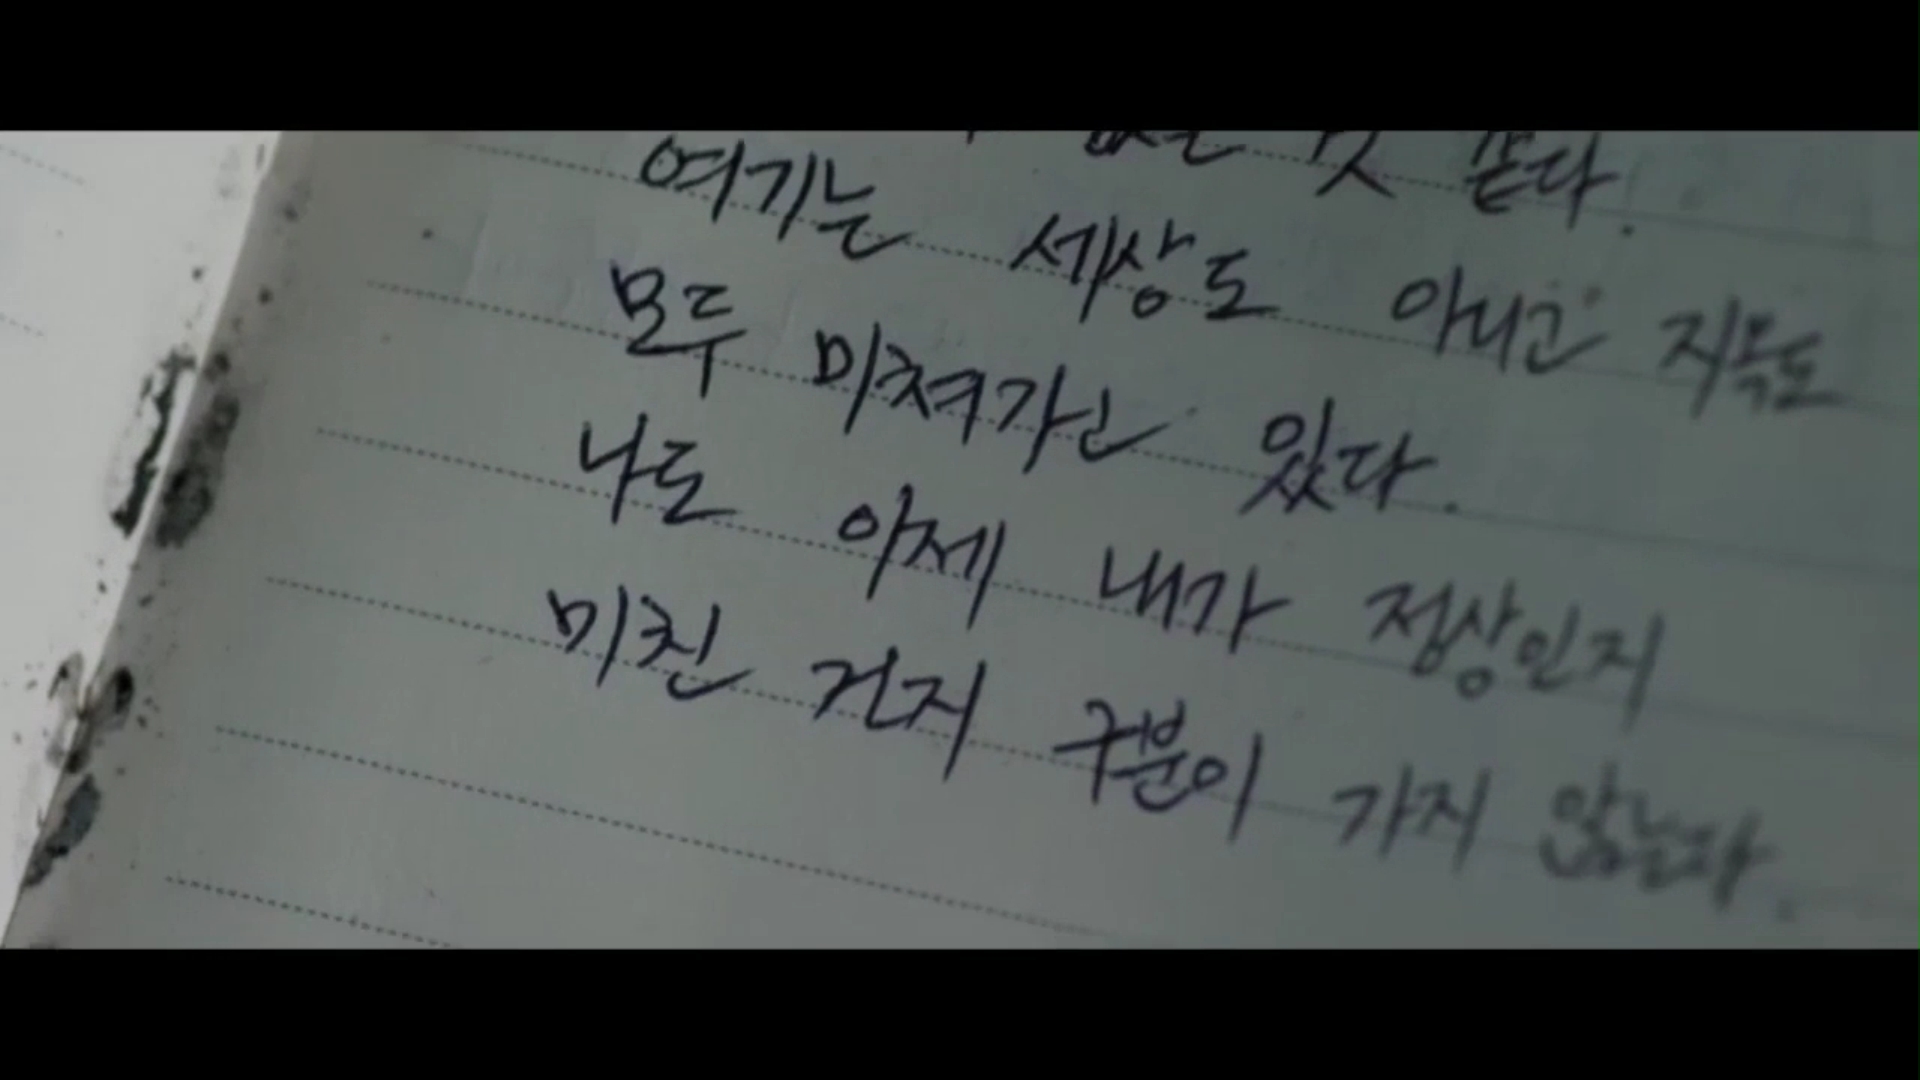 없는 것 같다.
여기는 세상도 아니고 지옥도
모두 미쳐가고 있다.
나도 이제 내가 정상인지
미친 건지 구분이 가지 않는다.